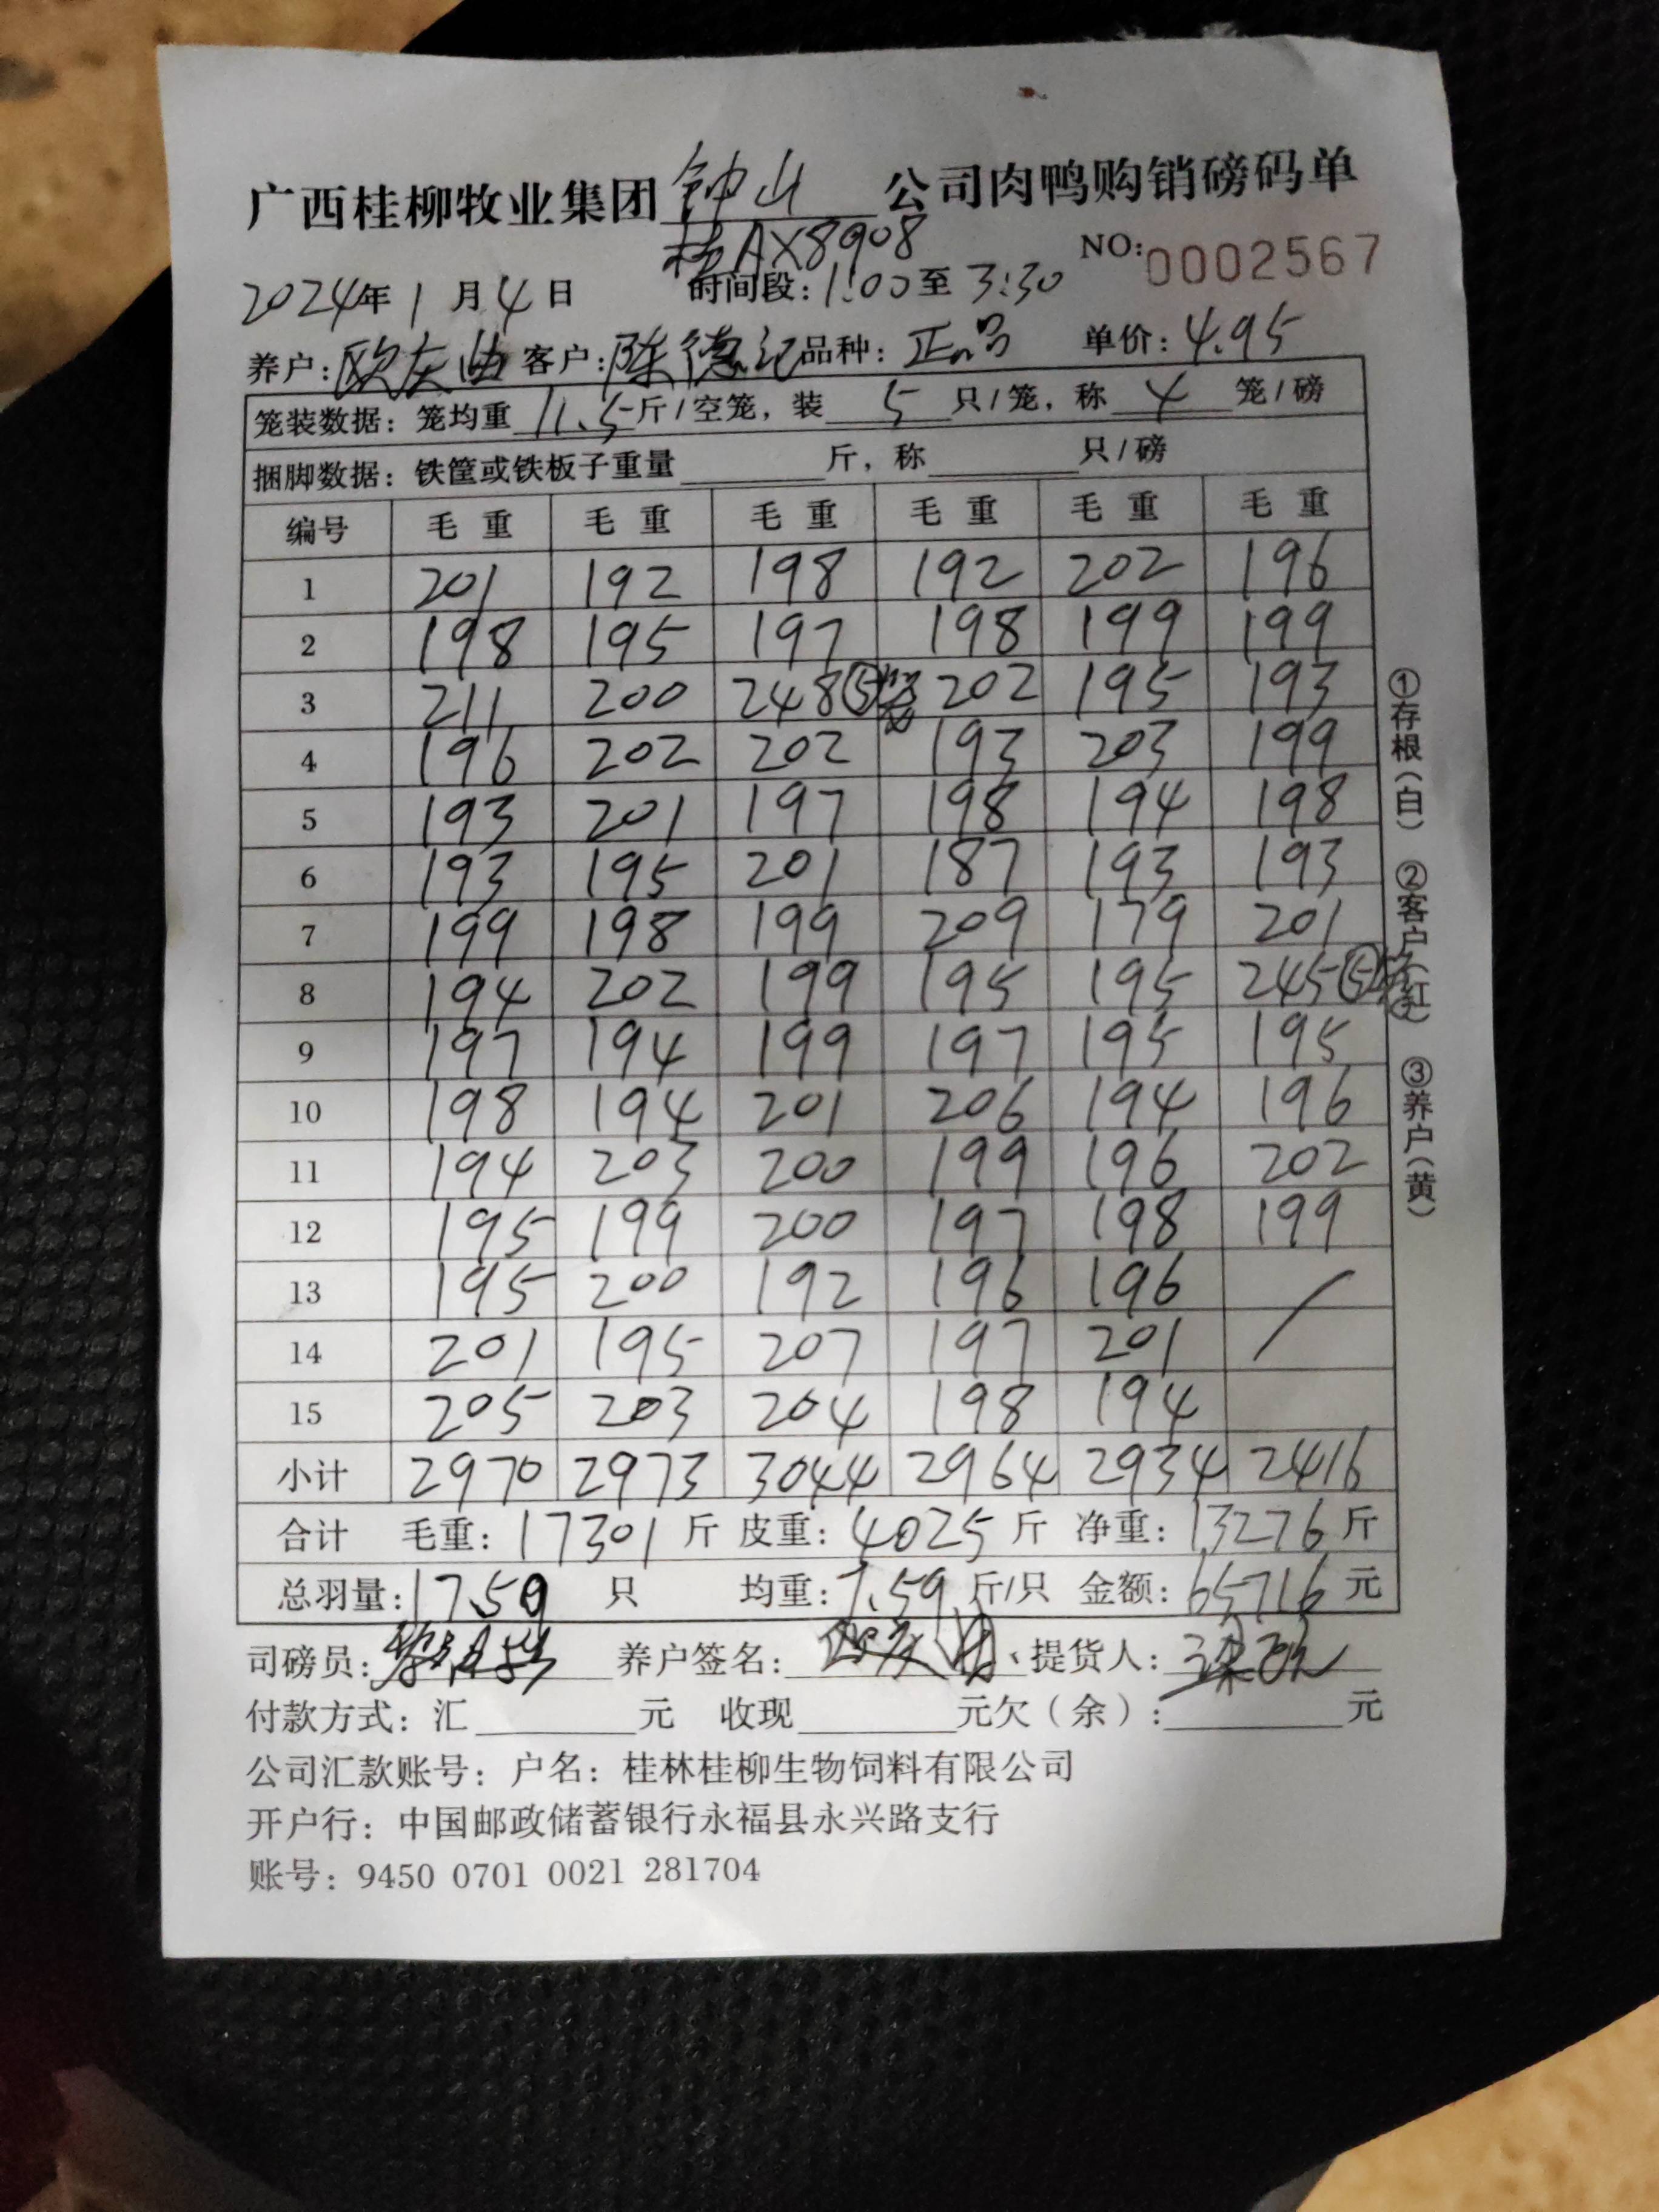 广西桂柳牧业集团钟山公司肉鸭购销磅码单
桂AX8908
NO:0002567
2024年1月4日 时间段:1:00至3:30
养户: 客户:陈德记 品种:正品 单价:4.95
笼装数据:笼均重11.5斤/空笼,装5只/笼,称4笼/磅
捆脚数据:铁筐或铁板子重量 斤,称 只/磅
编号 毛重 毛重 毛重 毛重 毛重 毛重
1 201 192 198 192 202 196
2 198 195 197 198 199 199
3 211 200 248⑤笼 202 195 193
4 196 202 202 193 203 199
5 193 201 197 198 194 198
6 193 195 201 187 193 193
7 199 198 199 209 179 201
8 194 202 199 195 195 245⑤笼
9 197 194 199 197 195 195
10 198 194 201 206 194 196
11 194 203 200 199 196 202
12 195 199 200 197 198 199
13 195 200 192 196 196
14 201 195 207 197 201
15 205 203 204 198 194
小计 2970 2973 3044 2964 2934 2416
合计 毛重:17301斤 皮重:4025斤 净重:13276斤
总羽量:1750只 均重:7.59斤/只 金额:65716元
司磅员: 养户签名: 提货人:
付款方式:汇 元 收现 元欠(余): 元
公司汇款账号:户名:桂林桂柳生物饲料有限公司
开户行:中国邮政储蓄银行永福县永兴路支行
账号:9450 0701 0021 281704
①存根(白) ②客户(红) ③养户(黄)